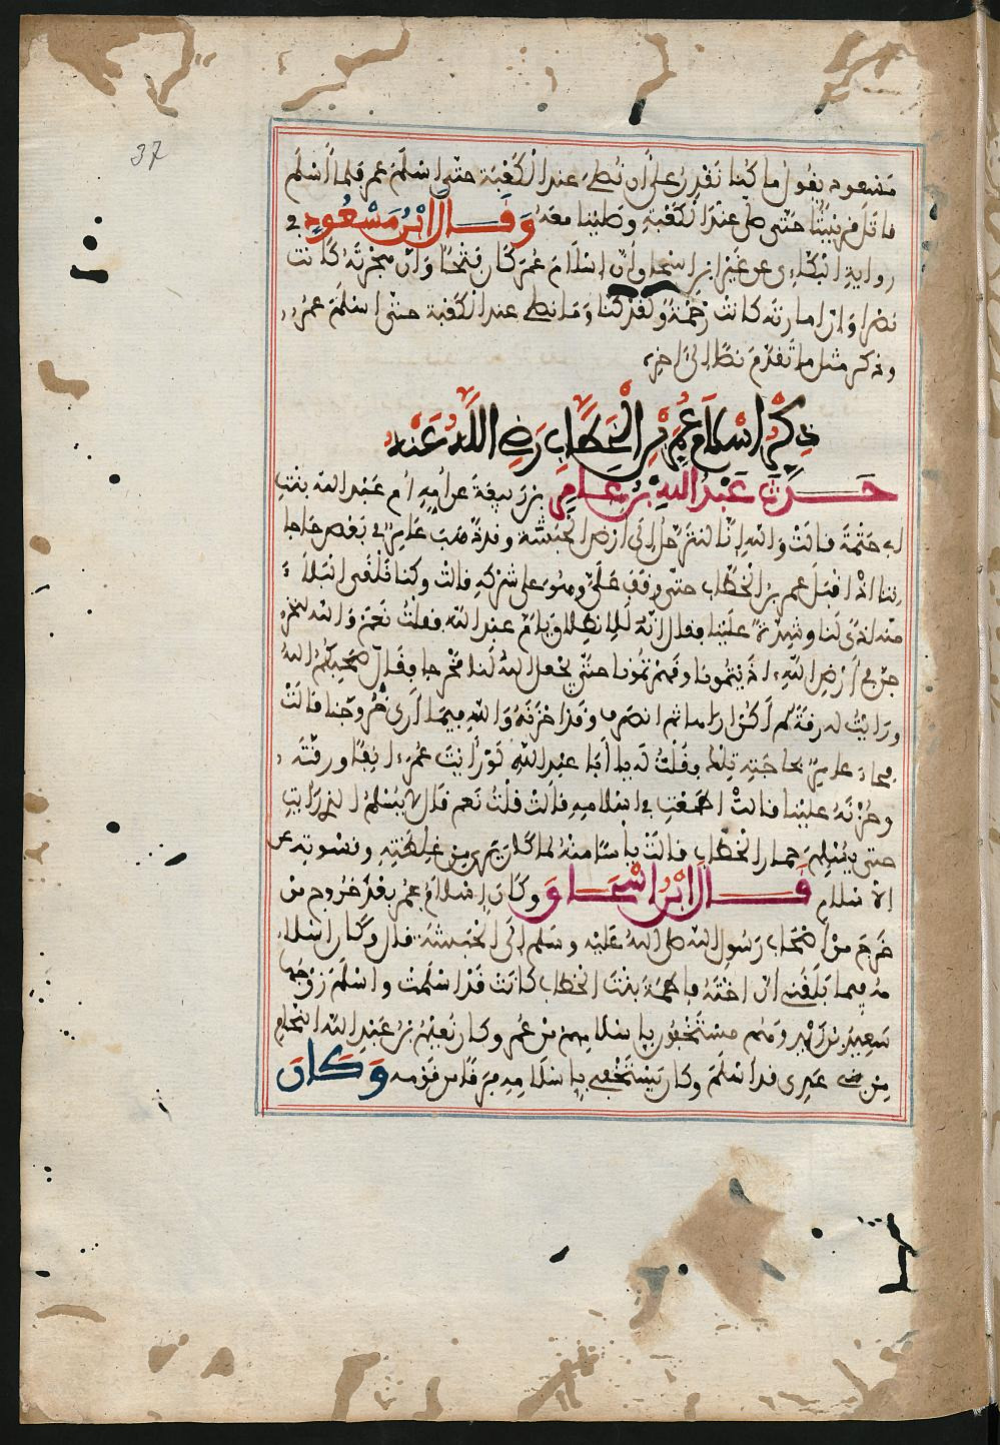 37
مسعود يقول ما كنا نقدر على أن نصلي عند الكعبة حتى أسلم عمر فلما أسلم
قاتل قريشا حتى صلى عند الكعبة وصلينا معه وقال ابن مسعود في
رواية البكاءى عن غير ابن اسحاق وأن إسلام عمر كان فتحا وان هجرته كانت
نصرا وان امارته كانت رحمة ولقد كنا وما نصلي عند الكعبة حتى اسلم عمر
وذكر مثل ما تقدم نصا إلى اخره
ذكر اسلام عمر بن الخطاب رضي الله عنه
حدث عبد الله بن عامر بن ربيعة عن أمه أم عبد الله بنت
ابي حثمة قالت والله إنا لنترحل إلى ارض الحبشة وقد ذهب عامر في بعض حاجا
تنا اذ اقبل عمر بن الخطاب حتى وقف علي وهو على شركه قالت وكنا نلقى البلاء
منه اذى لنا وشدة علينا فقال انه للانطلاق يا أم عبد الله فقلت نعم والله لنخر
جن في أرض الله اذيتمونا وقهرتمونا حتى يجعل الله لنا مخرجا فقال صحبكم الله
ورايت له رقة لم أكن اراها ثم انصرف وقد احزنه والله فيما أرى خروجنا قالت
فجاء عامر بحاجته تلك فقلت له يا أبا عبد الله لو رأيت عمر انفا ورقته
وحزنه علينا قالت اطمعت في اسلامه قالت قلت نعم قال لا يسلم الذي رايت
حتى يسلم حمار الخطاب قالت يأسا منه لما كان يرى من غلظته وقسوته عن
الاسلام قال ابن اسحاق وكان إسلام عمر بعد خروج من
خرج من أصحاب رسول الله صلى الله عليه وسلم إلى الحبشة قال وكان اسلا
مه فيما بلغني أن اخته فاطمة بنت الخطاب كانت قد اسلمت واسلم زوجها
سعيد بن زيد وهم مستخفون باسلامهم من عمر وكان نعيم بن عبد الله النحام
من بني عدي قد اسلم وكان يستخفي باسلامه فرقا من قومه وكان